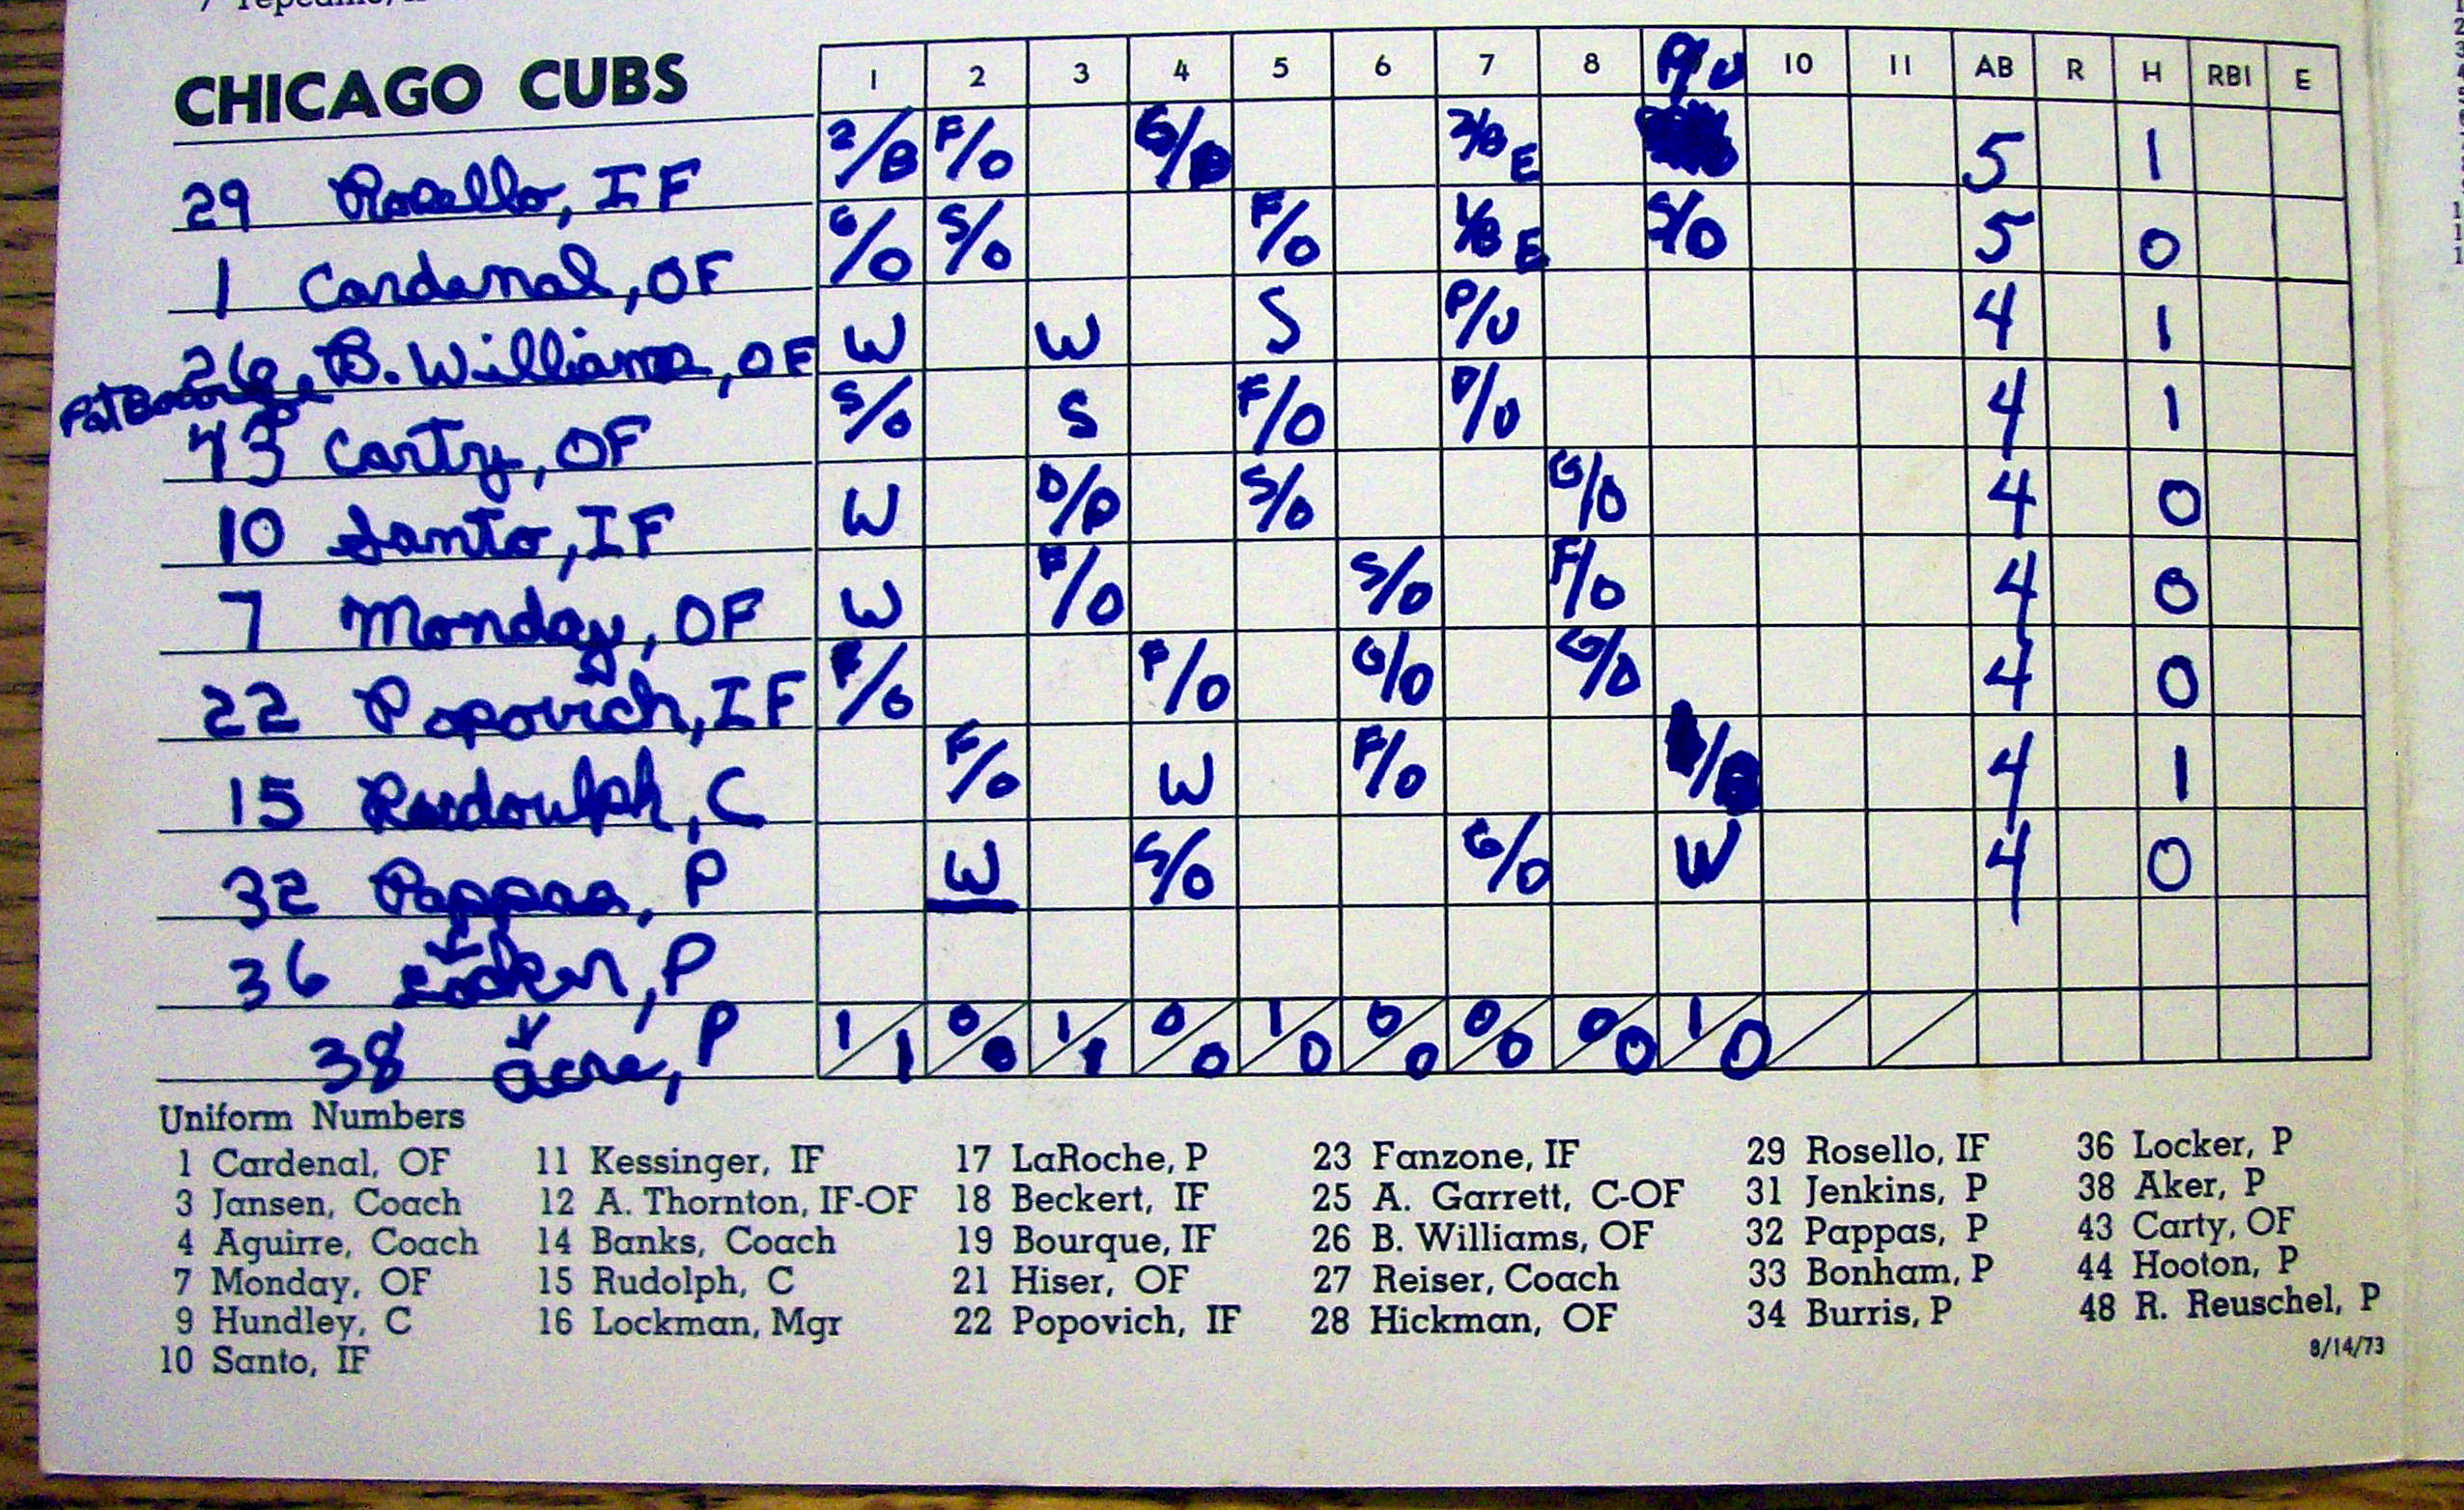 CHICAGO CUBS 1 2 3 4 5 6 7 8 P/U 10 11 AB R H RBI E
29 Rosello, IF 2/B F/O G/ 2/B E 5 1
1 Cardenal, OF G/O S/O F/O 1/B E S/O 5 0
26 B. Williams, OF W W S P/U 4 1
Pat Bourque
43 Carty, OF S/O S F/O P/U 4 1
10 Santo, IF W D/P S/O G/O 4 0
7 Monday, OF W F/O S/O F/O 4 0
22 Popovich, IF F/O F/O G/O G/O 4 0
15 Rudoulph, C F/O W F/O 4 1
32 Pappas, P W S/O G/O W 4 0
36 Locker, P
38 Acre, P 1/1 0/0 1/1 0/0 1/0 0/0 0/0 0/0 1/0
Uniform Numbers
1 Cardenal, OF 11 Kessinger, IF 17 LaRoche, P 23 Fanzone, IF 29 Rosello, IF 36 Locker, P
3 Jansen, Coach 12 A. Thornton, IF-OF 18 Beckert, IF 25 A. Garrett, C-OF 31 Jenkins, P 38 Aker, P
4 Aguirre, Coach 14 Banks, Coach 19 Bourque, IF 26 B. Williams, OF 32 Pappas, P 43 Carty, OF
7 Monday, OF 15 Rudolph, C 21 Hiser, OF 27 Reiser, Coach 33 Bonham, P 44 Hooton, P
9 Hundley, C 16 Lockman, Mgr 22 Popovich, IF 28 Hickman, OF 34 Burris, P 48 R. Reuschel, P
10 Santo, IF 8/14/73